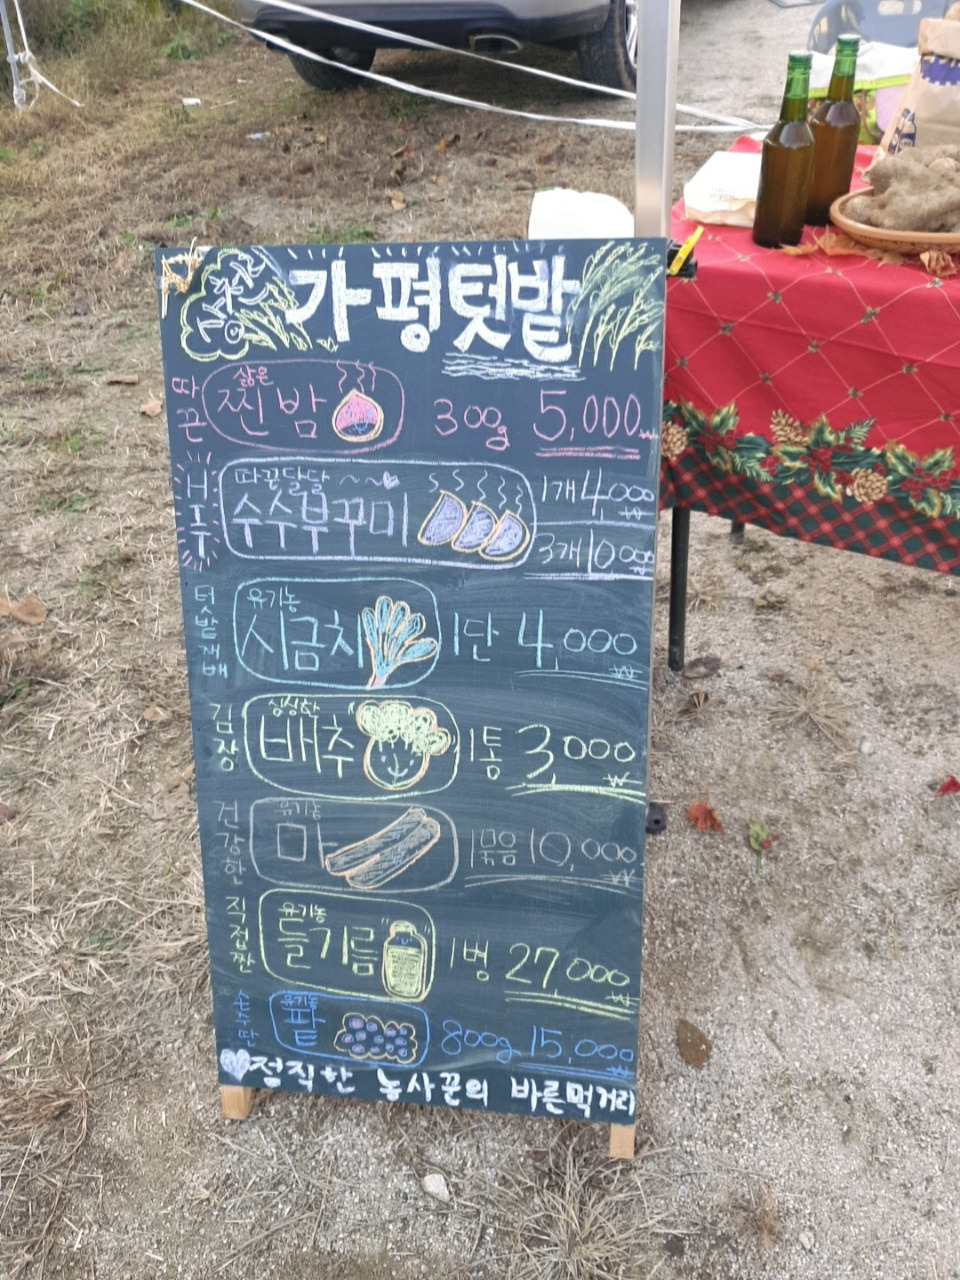 가평텃밭
따끈 삶은 찐밤 300g 5,000₩
따끈달달~~
수수부꾸미
1개 4,000₩
3개 10,000₩
텃밭재배 유기농 시금치 1단 4,000₩
김장 싱싱한 배추 1통 3,000₩
건강한 유기농 마 1묶음 10,000₩
직접짠 유기농 들기름 1병 27,000₩
손수딴 유기농 팥 800g 15,000₩
정직한 농사꾼의 바른먹거리